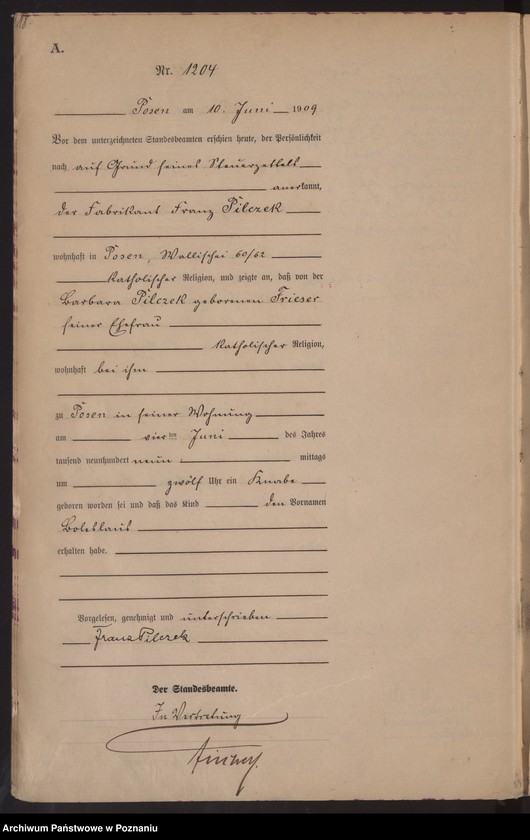 A.
Nr. 1204
Posen am 10. Juni 1909
Vor dem unterzeichneten Standesbeamten erschien heute, der Persönlichkeit
nach auf Grund seines Steuerzettels
anerkannt,
der Fabrikant Franz Pilczek
wohnhaft in Posen, Wallischei 60/62
katholischer Religion, und zeigte an, daß von der
Barbara Pilczek geborenen Frieser
seiner Ehefrau
katholischer Religion,
wohnhaft bei ihm
zu Posen in seiner Wohnung
am vierten Juni des Jahres
tausend neunhundert neun mittags
um zwölf Uhr ein Knabe
geboren worden sei und daß das Kind den Vornamen
Boleslaus
erhalten habe.
Vorgelesen, genehmigt und unterschrieben
Franz Pilczek
Der Standesbeamte.
In Vertretung
Archiwum Państwowe w Poznaniu